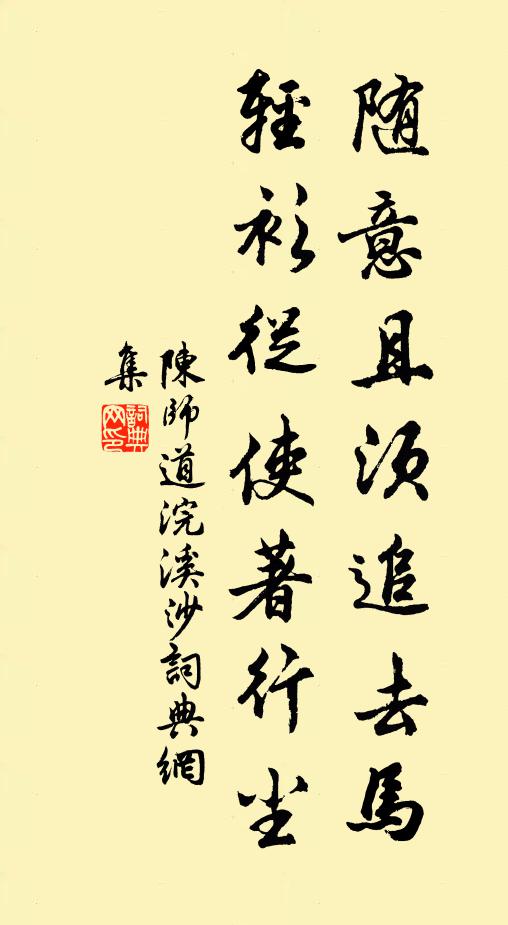 随意且須追去馬
輕衫從使著行尘
陳師道浣溪沙詞典網
集
詞典
网印